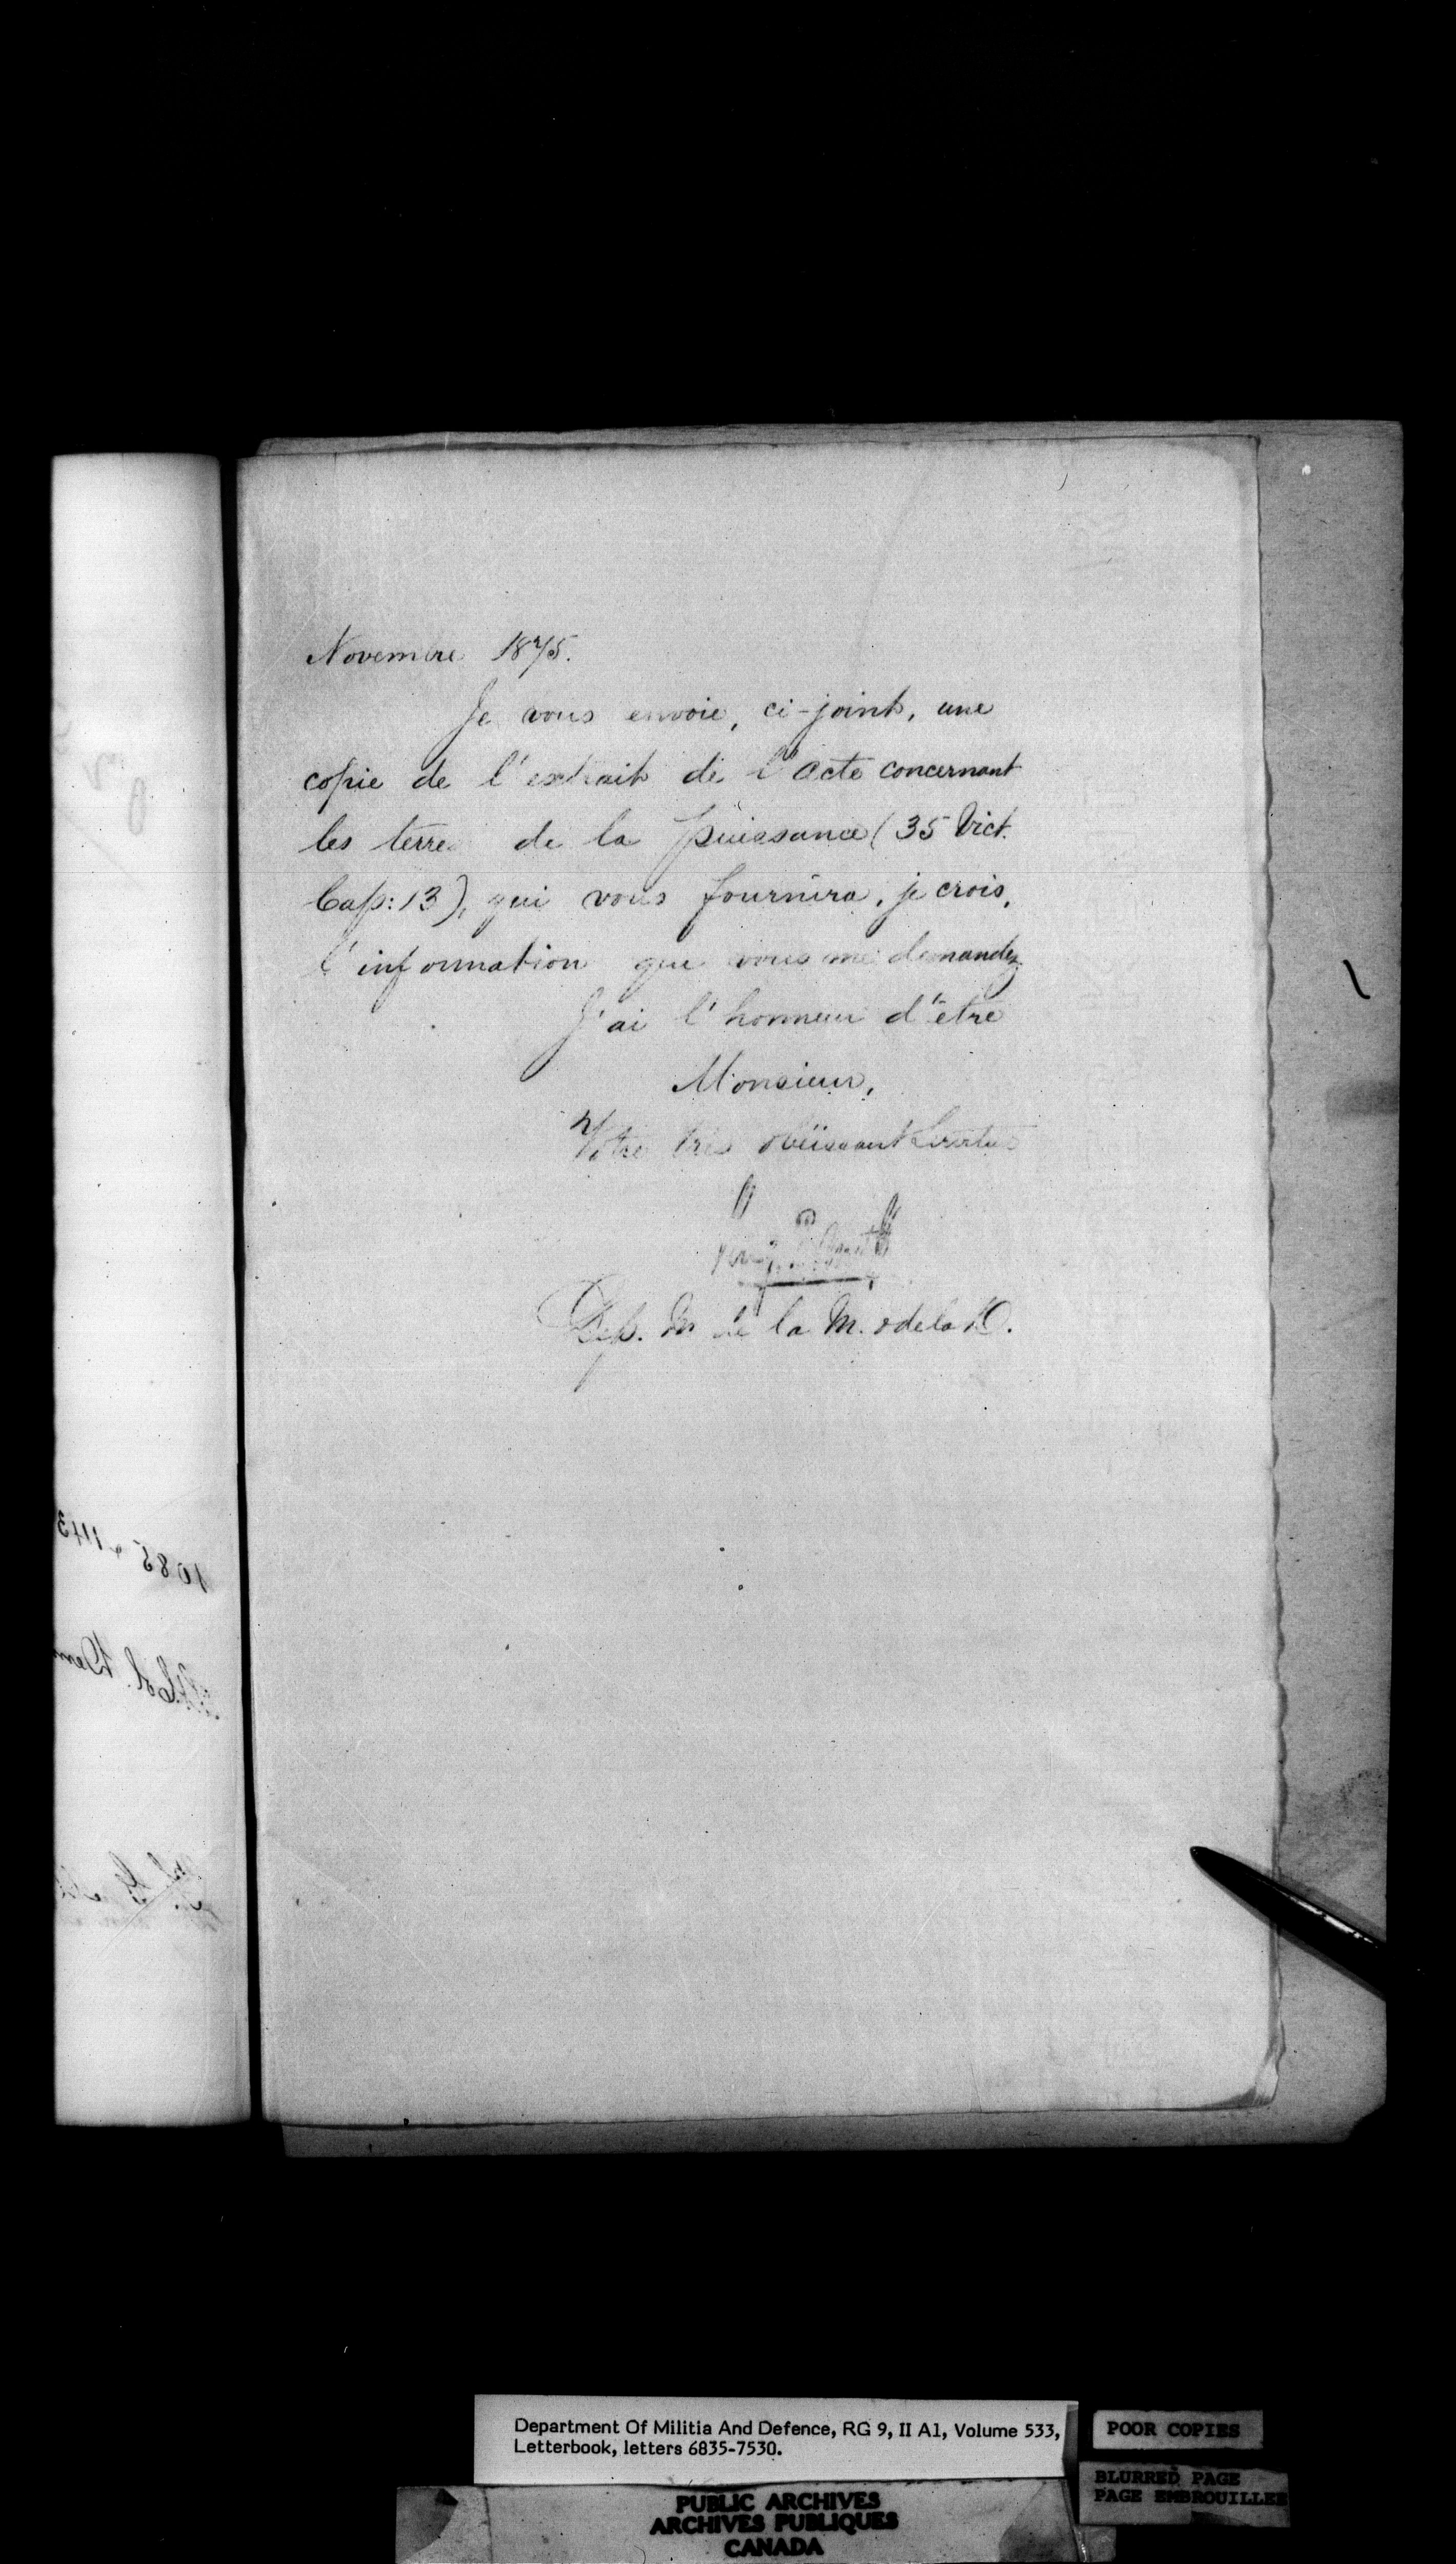 Novembre 1875.
Je vous envoie, ci-joint, une
copie de l'extrait de l'acte concernant
les terres de la puissance (35 Vict.
Cap: 13), qui vous fournira, je crois,
l'information que vous me demandez
J'ai l'honneur d'être
Monsieur,
Votre très obéissant Serviteur
Dep. M de la M. & de la D.
1085
Department Of Militia And Defence, RG 9, II A1, Volume 533,
Letterbook, letters 6835-7530.
POOR COPIES
BLURRED PAGE
PAGE EMBROUILLEE
PUBLIC ARCHIVES
ARCHIVES PUBLIQUES
CANADA